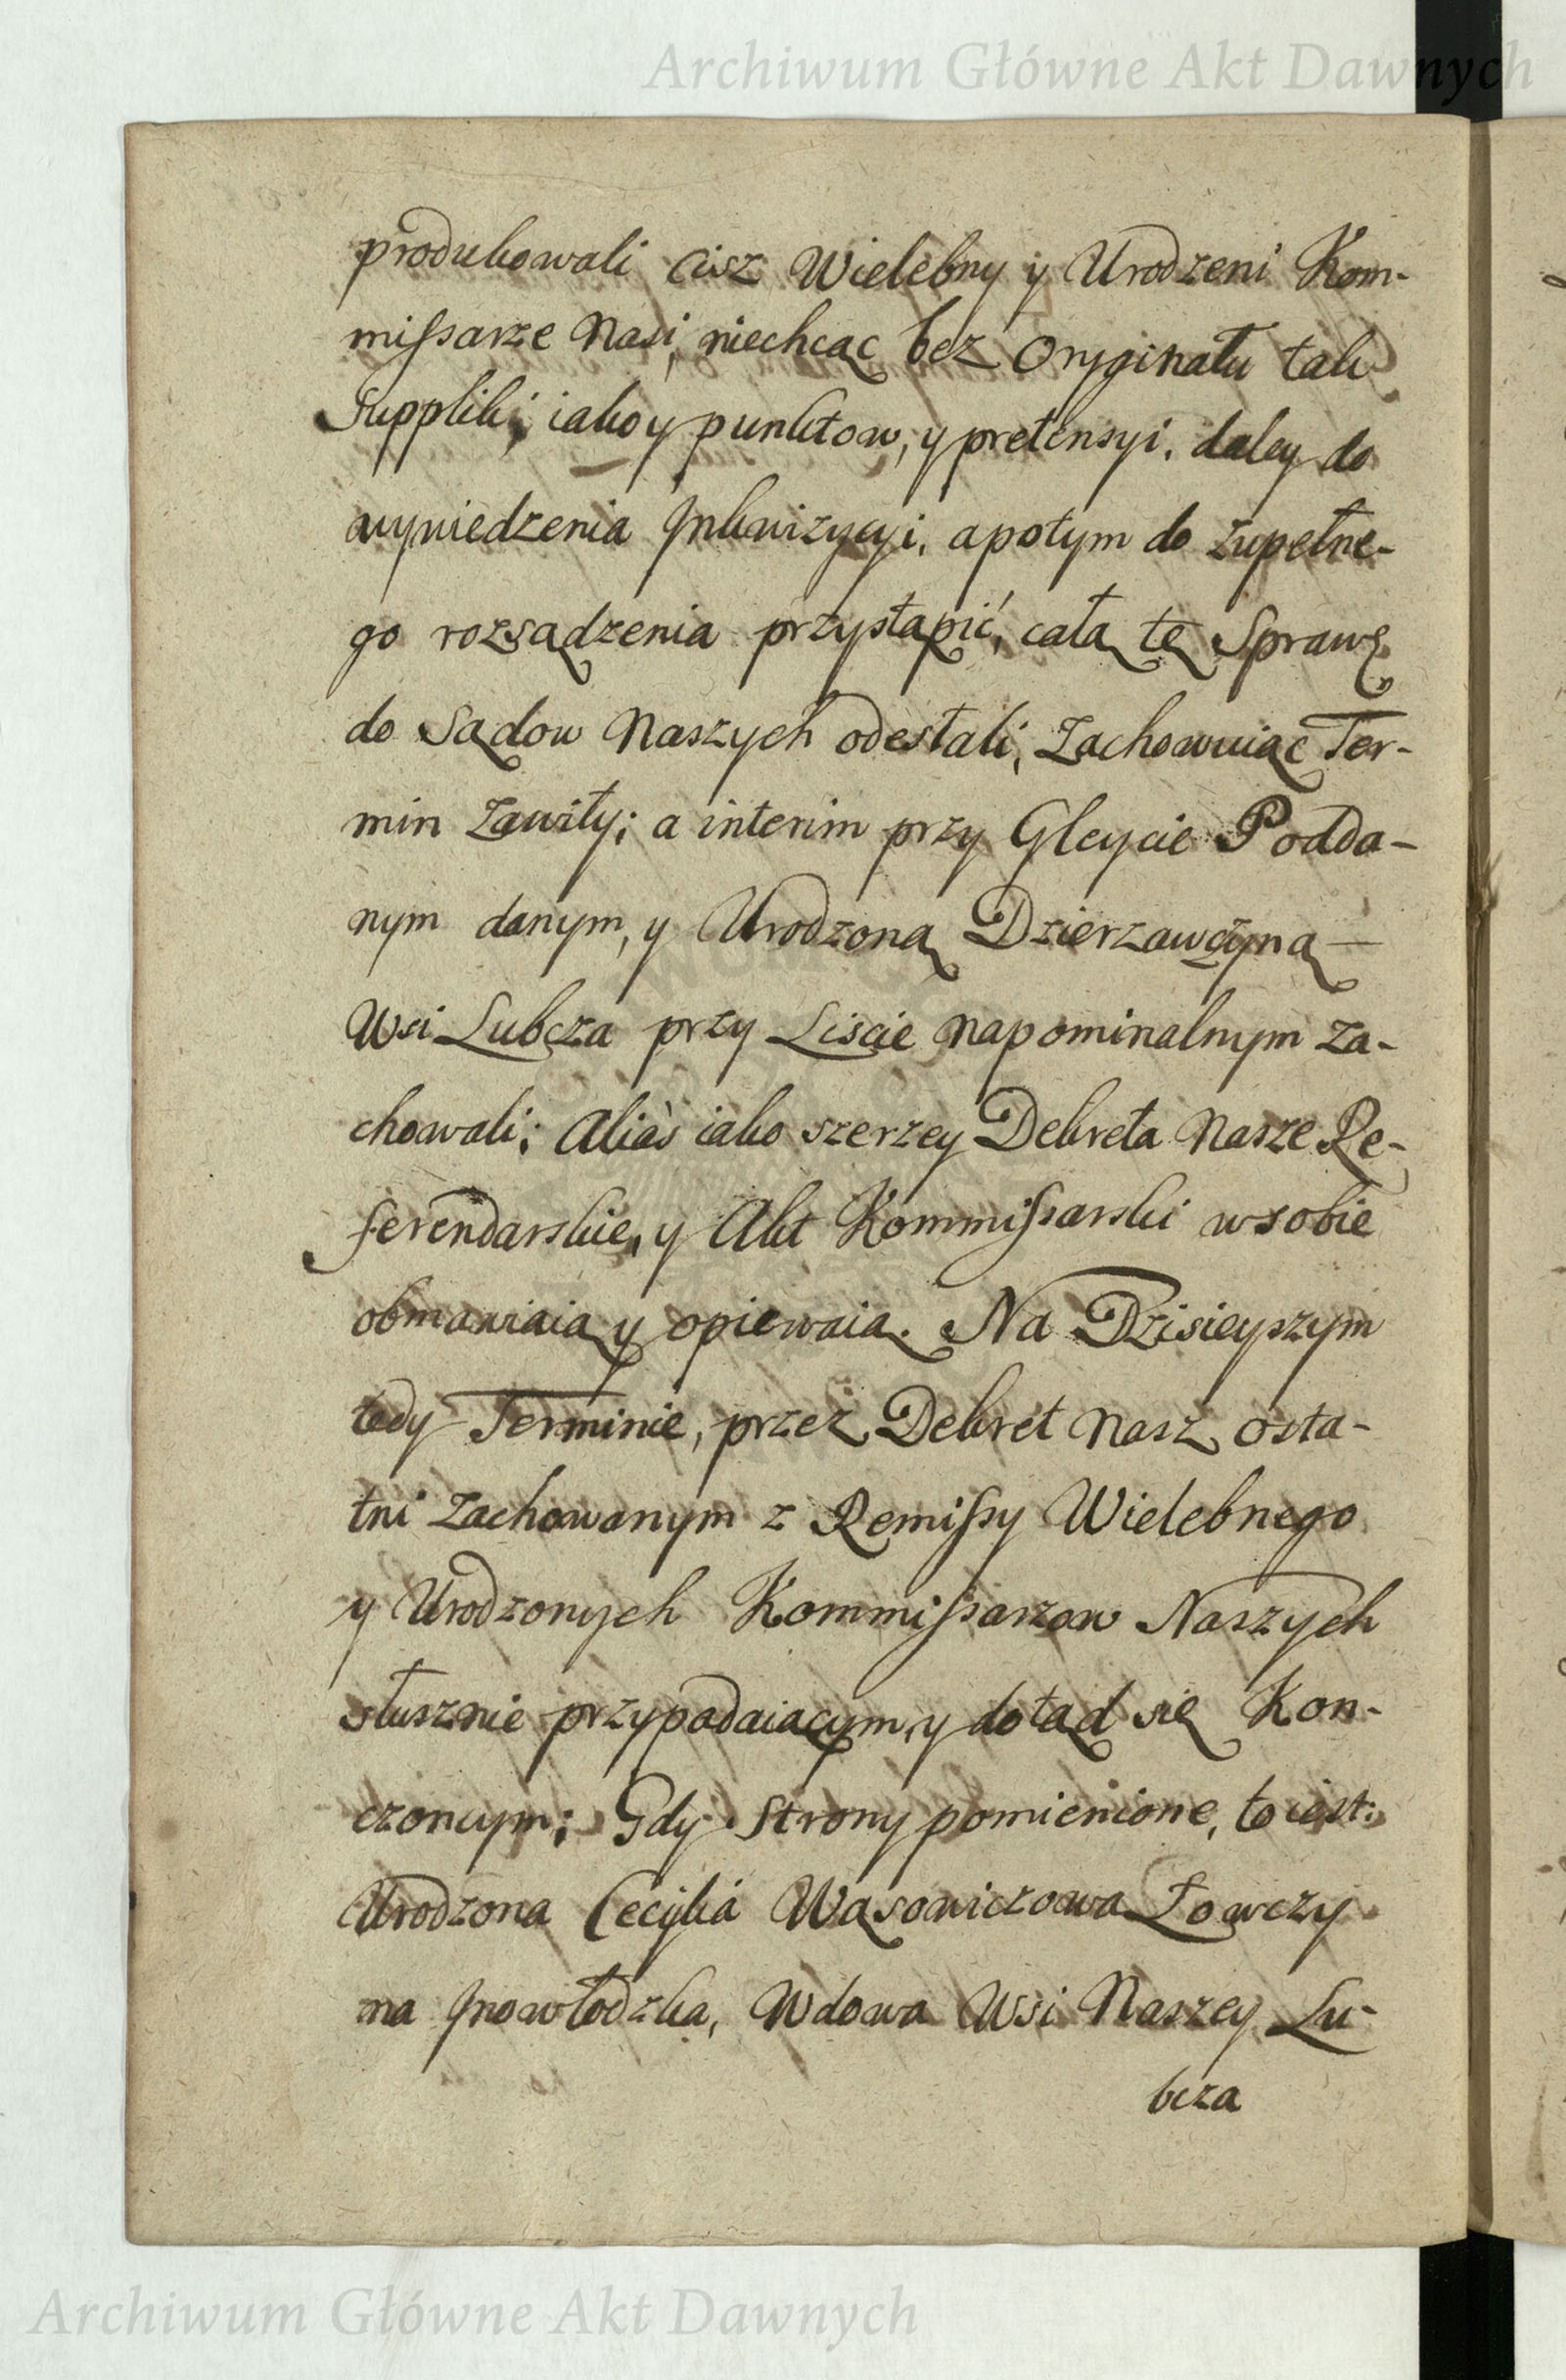 Archiwum Główne Akt Dawnych
produkowali cisz Wielebny y Urodzeni Kom-
missarze Nasi, niechcąc bez Oryginału tak
Suppliki, iako y punktow, y pretensyi, daley do
wywiedzenia Inkwizycyi, a potym do zupełne-
go rozsądzenia przystąpić, całą tę Sprawę
do Sądow Naszych odesłali, Zachowuiąc Ter-
min Zawity; a interim przy Gleycie Podda-
nym danym, y Urodzoną Dzierzawczyną
Wsi Lubcza przy Liscie napominalnym za-
chowali; Aliàs iako szerzey Dekreta Nasze Re-
ferendarskie, y Akt Kommissarski w sobie
obmawiaią y opiewaią. Na Dzisieyszym
tedy Terminie, przez Dekret Nasz osta-
tni Zachowanym z Remissy Wielebnego
y Urodzonych Kommissarzow Naszych
słusznie przypadaiącym, y dotąd się Kon-
czoncym; Gdy Strony pomienione, to iest:
Urodzona Cecylia Wąsowiczowa Łowczy
na Inowłodzka, Wdowa Wsi Naszey Lu-
bcza
Archiwum Główne Akt Dawnych